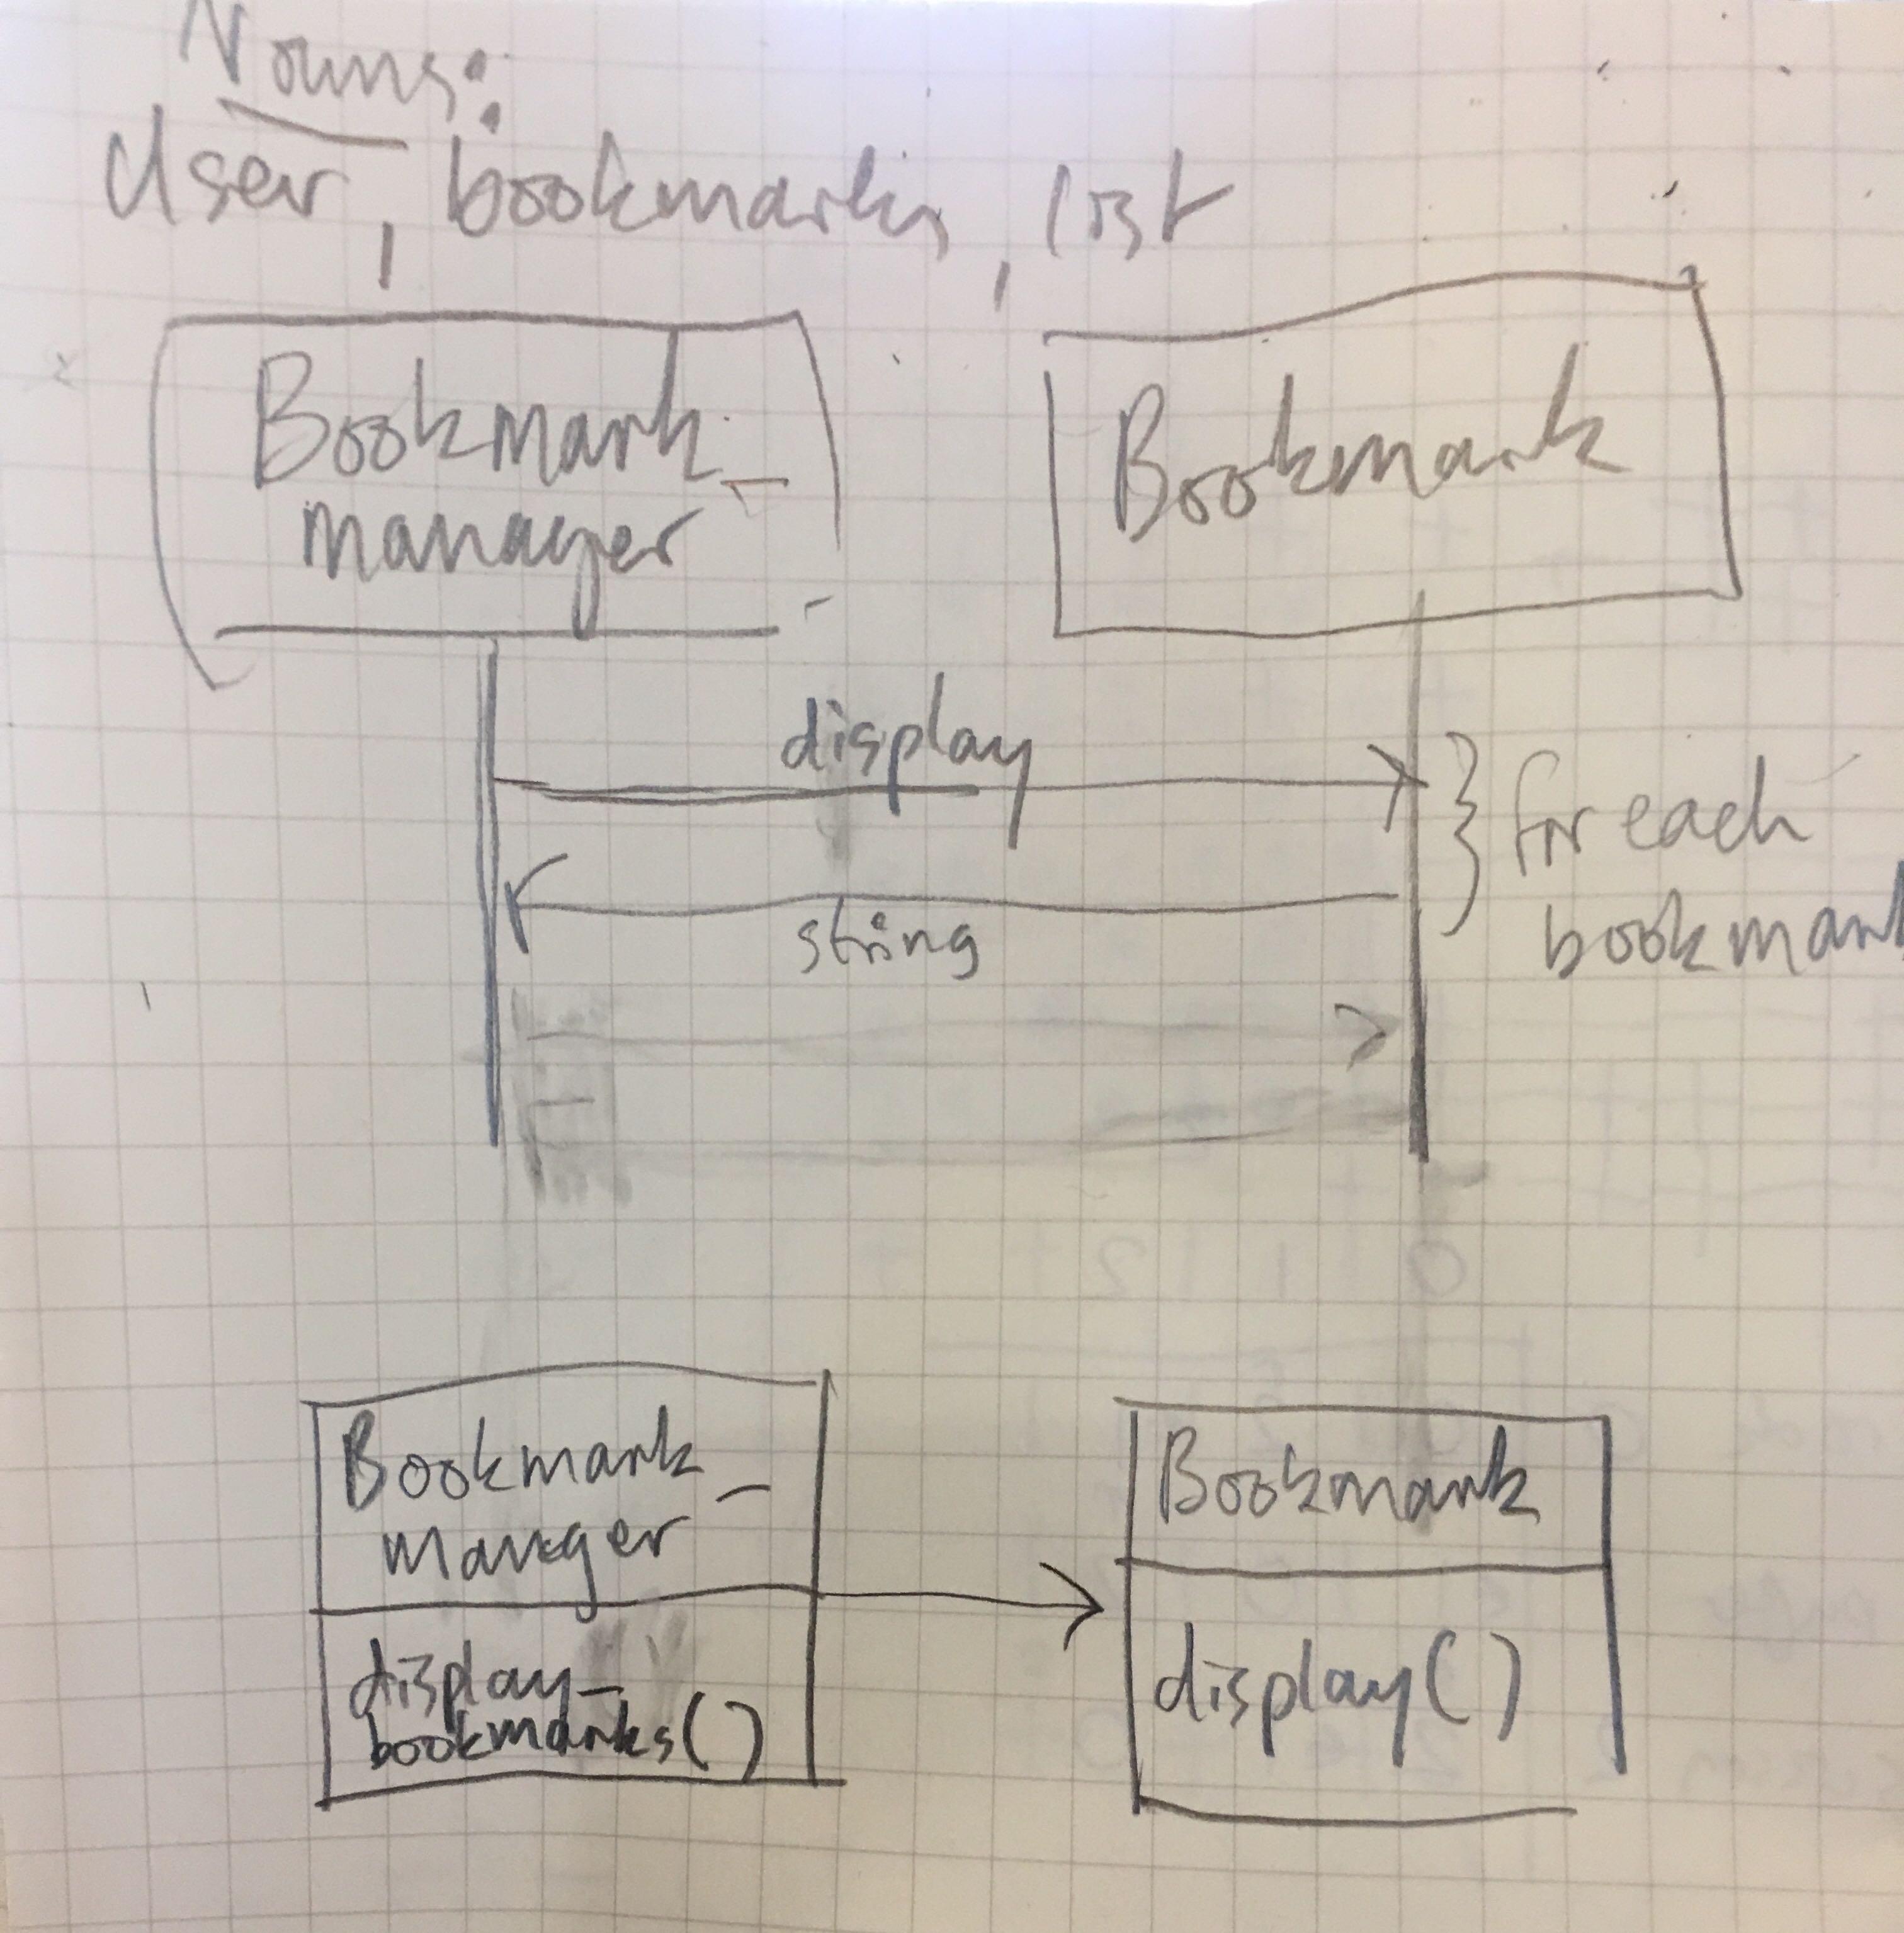 Nouns:
User, bookmarks, list
Bookmark_
manager
Bookmark
display
string
for each
bookmark
Bookmark_
manager
display_
bookmarks()
Bookmark
display()